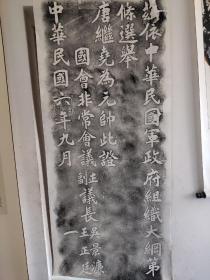 茲依中華民國軍政府組織大綱第
條選舉
唐繼堯為元帥此證
國會非常會議正副議長吳景濂王正廷
中華民國六年九月一